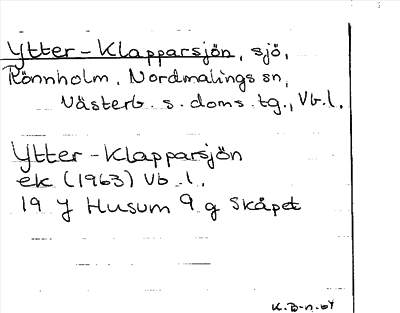 Ytter-Klapparsjön, sjö,
Rönnholm. Nordmalings sn,
Västerb. s. doms. tg., Vb. l.
Ytter-Klapparsjön
ek (1963) Vb. l.
19 J Husum 9 g Skåpet
K.B-n. 64